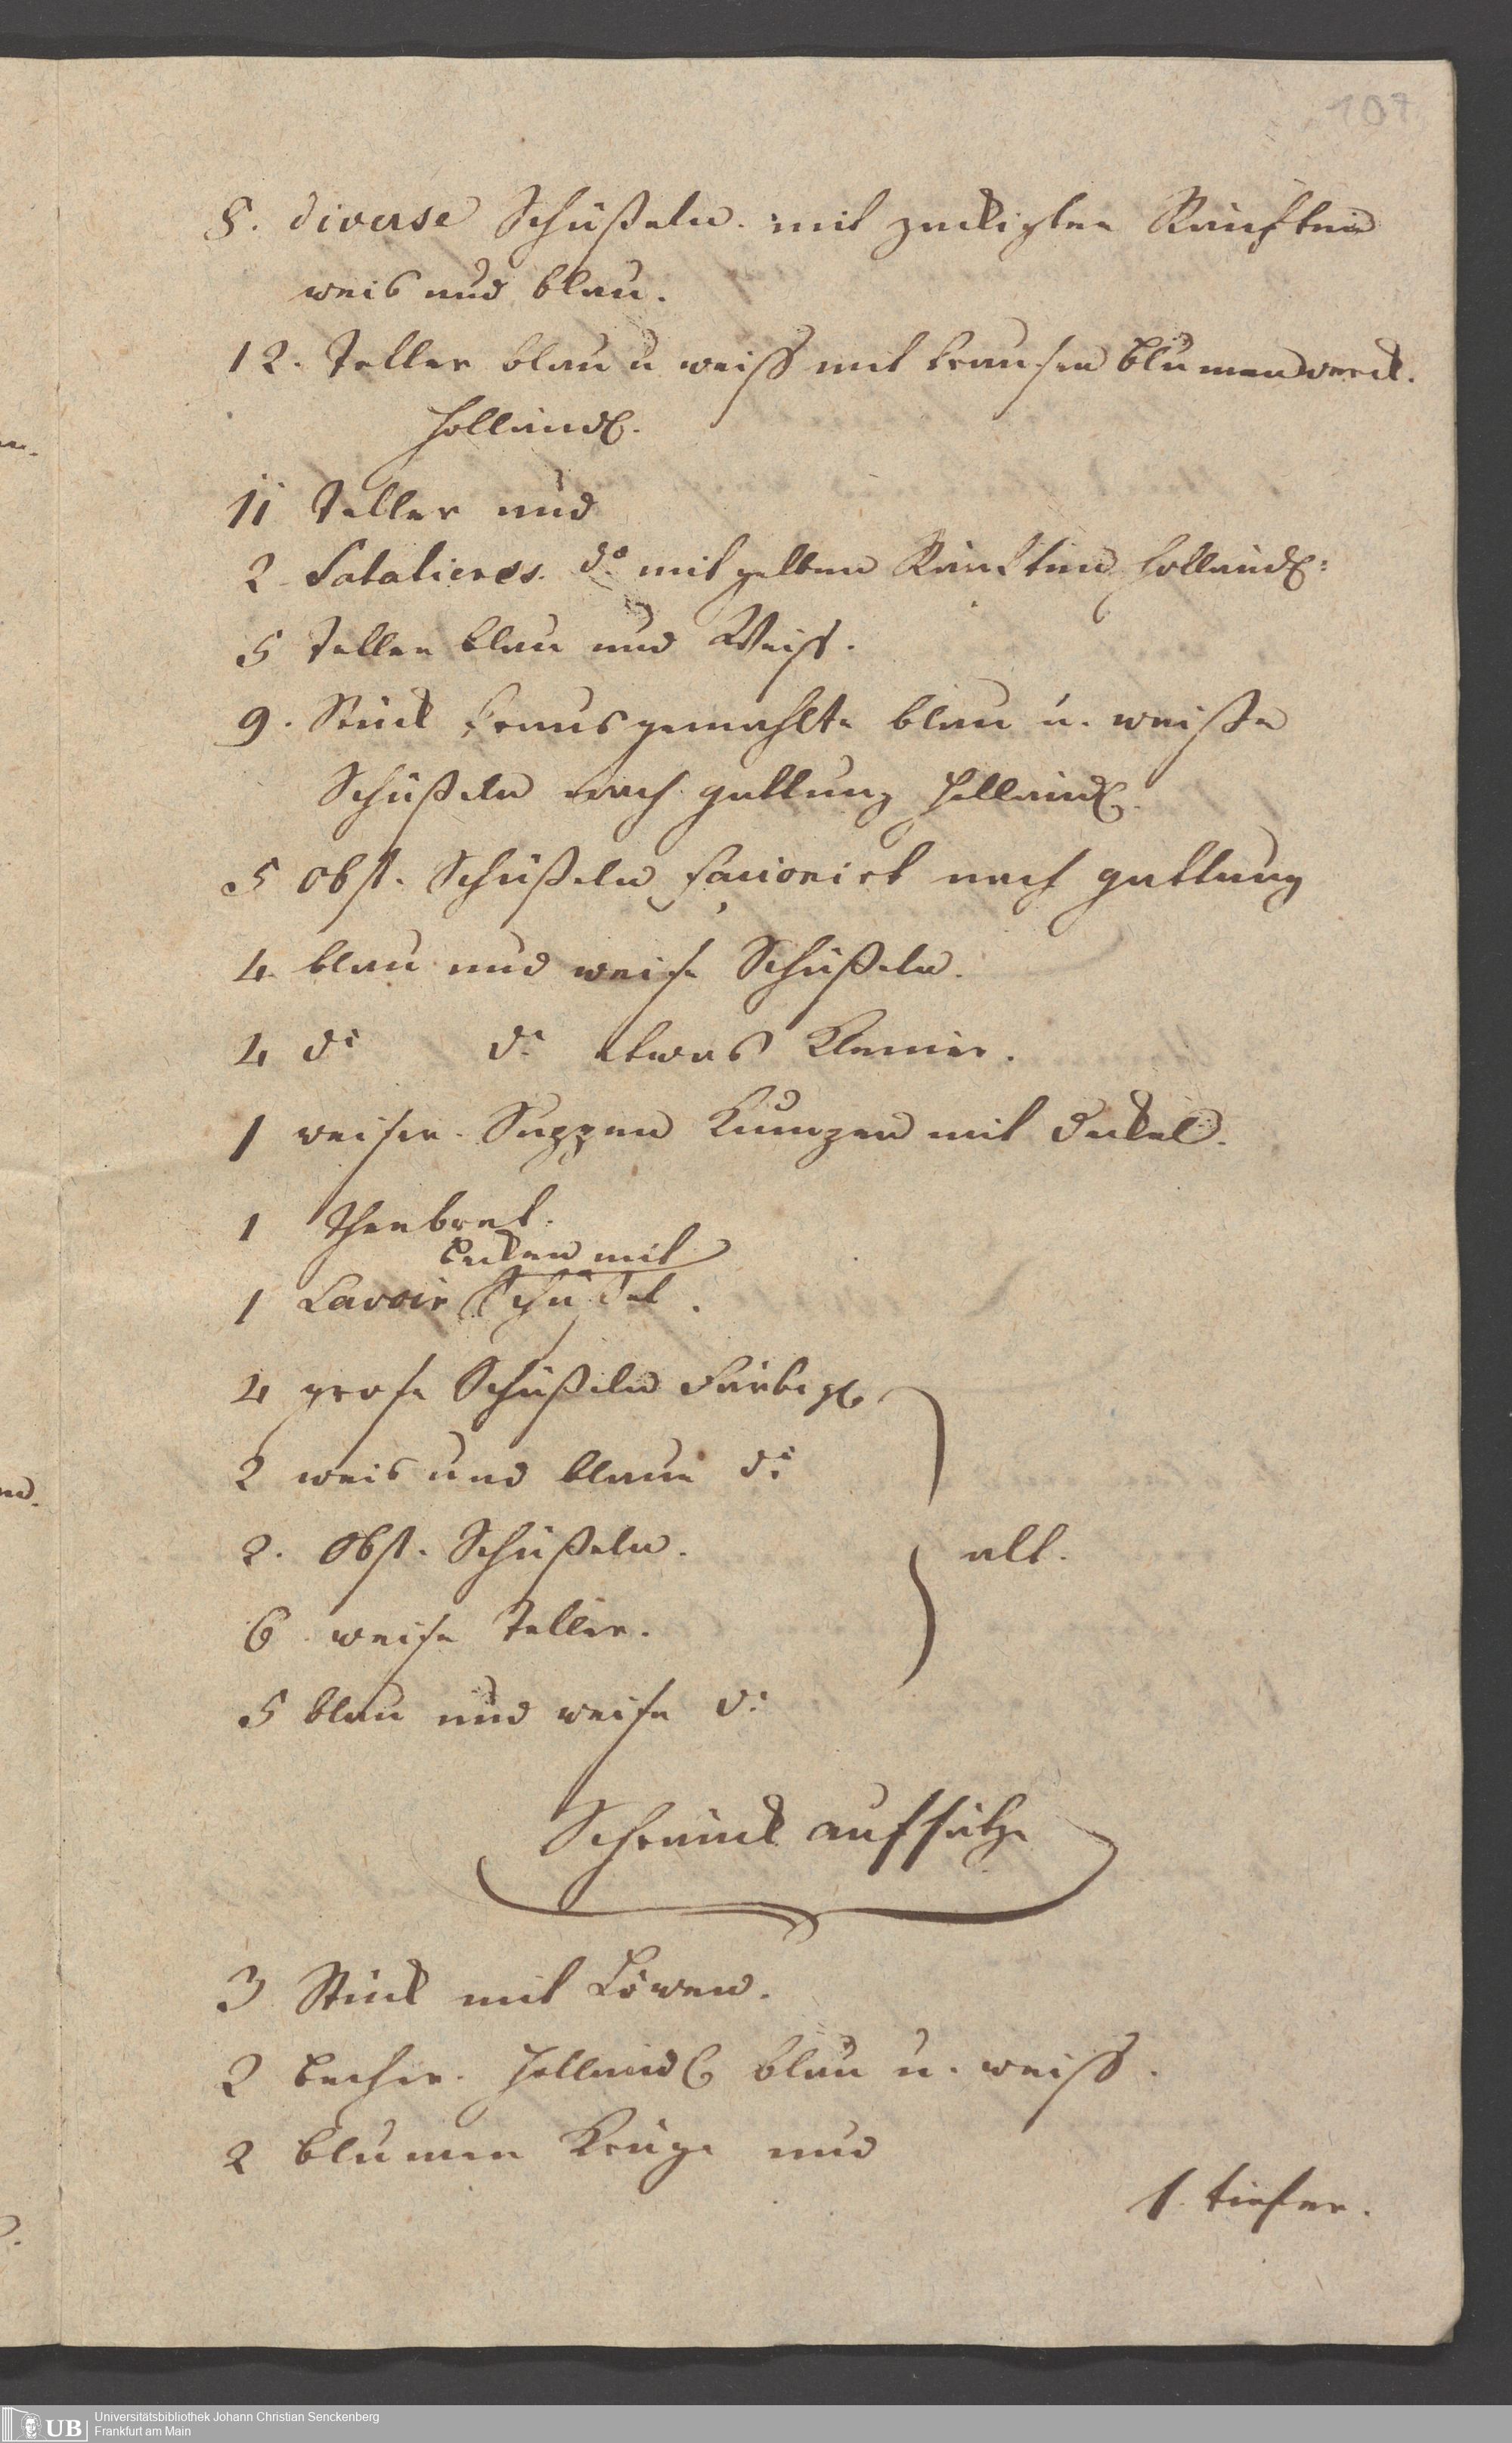 107
8. diverse Schüßeln. mit zackigten Ränften
weis und blau.
12. Teller blau u weiss mit krausen Blumenwerck.
Holländ.
11 Teller und
2 Salatieres. do mit gelben Ränften Holländ:
5 Teller blau und Weiss.
9. Stück krausgemahlte blau u. weiße
Schüßeln nach gattung Holländ.
5 Obst. Schüßeln facionirt nach gattung
4 blau und weise Schüßeln.
4 do do etwas Kleiner.
1 weiser Suppen Kumpen mit Deckel.
1 Theebret.
Becken mit
1 Lavoir
4 grose Schüßeln Färbigt
2 weis und blaue do
2. Obst. Schüßeln.
alt.
6 weise Teller.
5 blau und weise do
Schränck aufsätze
3 Stück mit Löwen.
2 Becher. Holländ blau u. weiss.
2 Blumen Krüge und
1. tiefer.
UB
Universitätsbibliothek Johann Christian Senckenberg
Frankfurt am Main